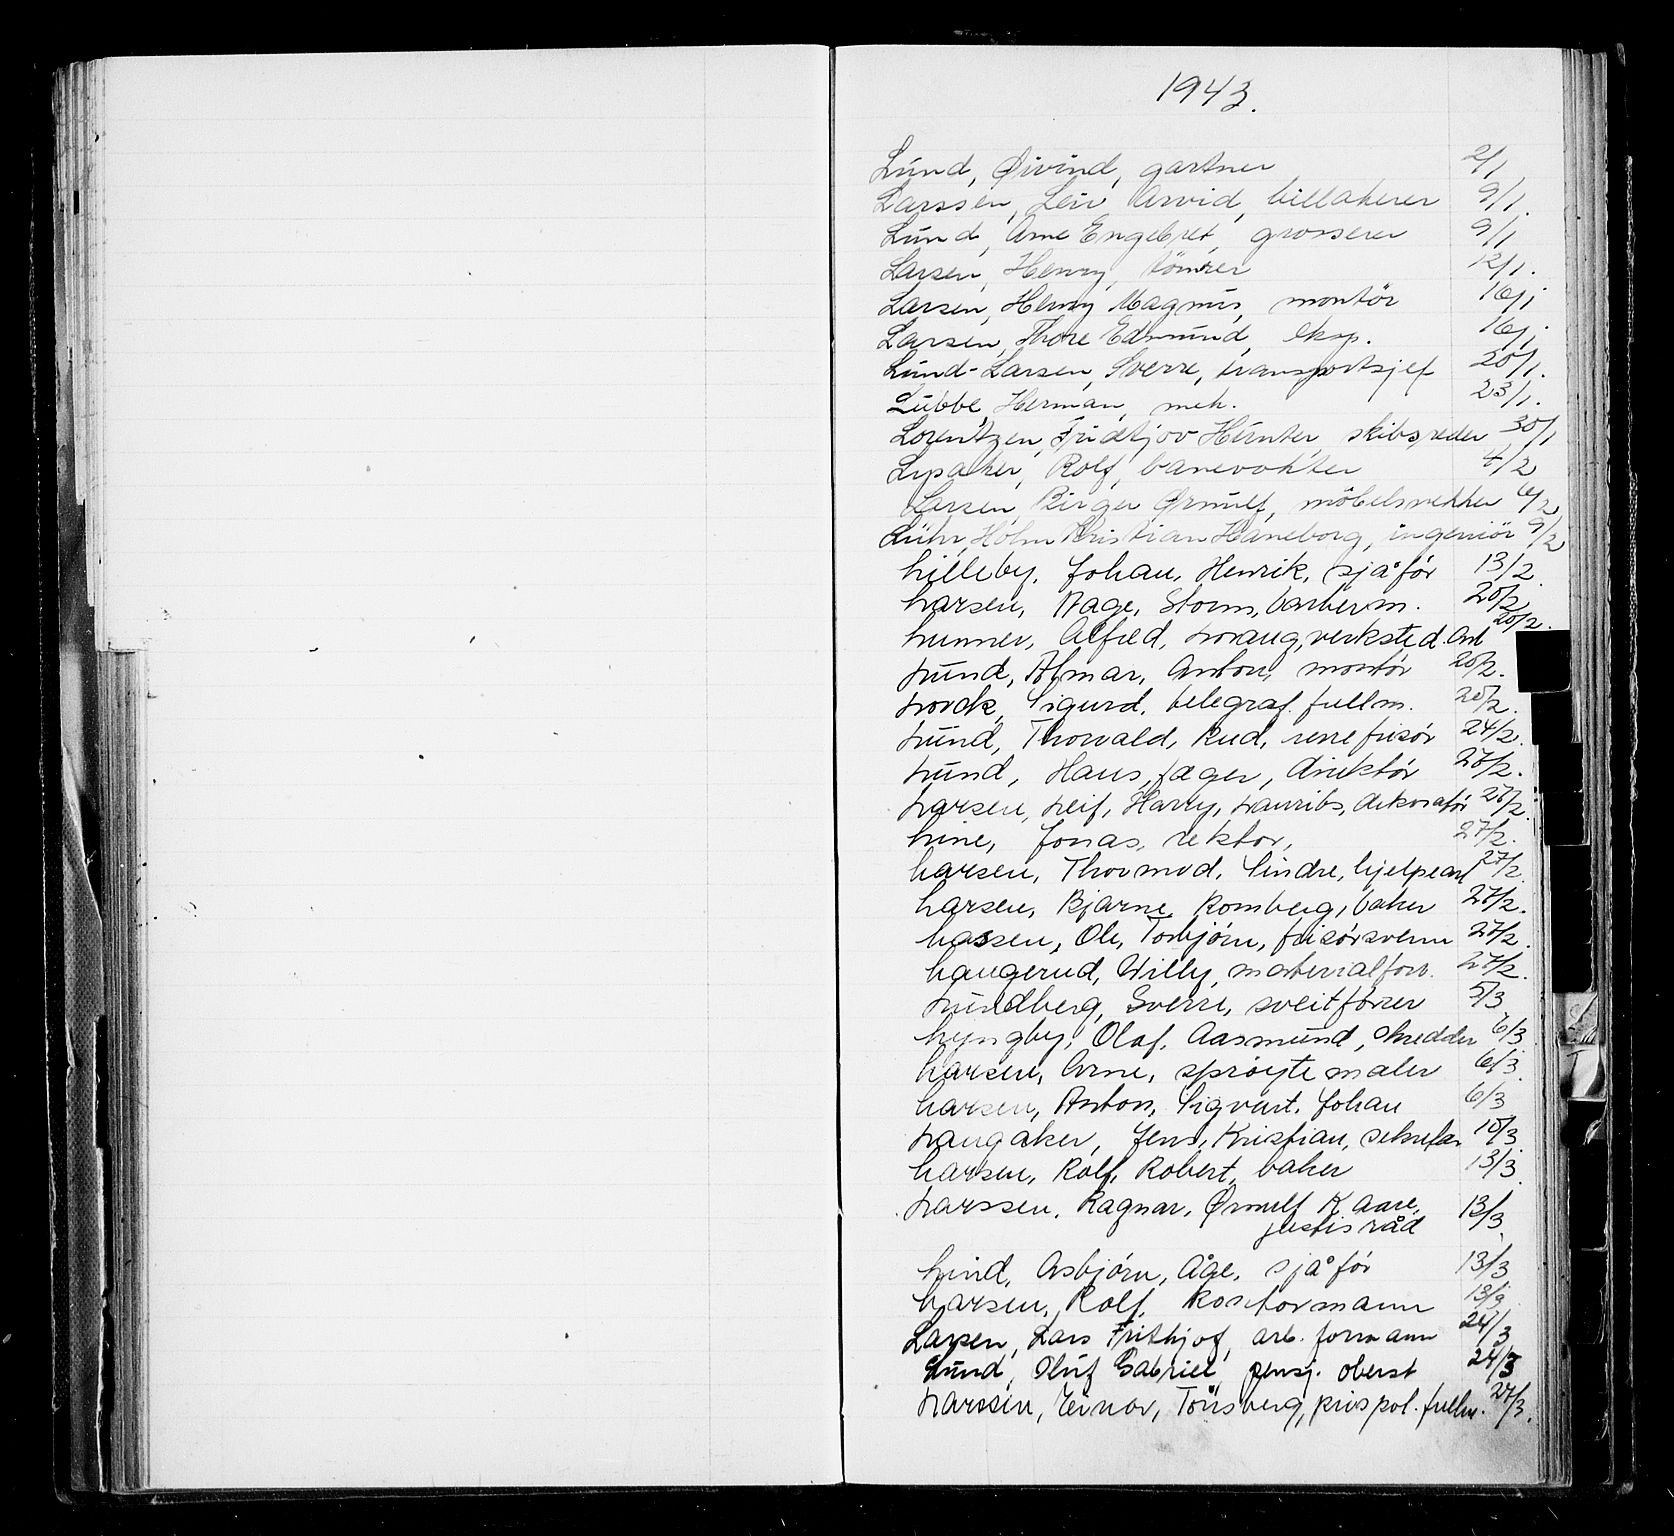 1943.
Lund, Øivind, gartner 2/1
Larssen, Leiv Arvid, billakerer 9/1.
Lund, Arne Engebret, grosserer 9/1
Larsen, Henry, tömrer 12/1.
Larsen, Henry Magnus, montör 16/1
Larsen, Thore Edmund, eksp. 16/1.
Lund-Larsen, Sverre, transportsjef 20/1.
Lübbe, Herman, mek. 23/1.
Lorentzen, Fridtjov Hunter, skibsreder 30/1
Lysaker, Rolf, banevokter 4/2
Larsen, Birger Ørnulf, möbelsnekker 6/2
Lühr, Holm Kristian Haneborg, ingeniör 9/2
Lilleby, Johan, Henrik, sjåfór 13/2.
Larsen, Aage, Storm, barberm. 20/2
Lunner, Alfred, verksted.arb 20/2.
Lund, Almar, Anton, montór 20/2.
Lorck, Sigurd, telegraf.fullm. 20/2.
Lund, Thorvald, Rud, herrefrisór 24/2.
Lund, Hans, Jæger, direktór 27/2.
Larsen, Leif, Harry, Laurits, dekoratór 27/2.
Line, Jonas, rektor, 27/2.
Larsen, Thormod, Sindre, hjelpearb 27/2.
Larsen, Bjarne, Romberg, baker 27/2.
Lassen, Ole, Torbjórn, frisórsvenn 27/2.
Laugerud, Willy, materialforv. 27/2.
Lundberg, Sverre, 5/3
Lyngby, Olaf, Aasmund, skredder 6/3
Larsen, Arne, spróytemaler 6/3.
Larsen, Anton, Sigvart, Johan 6/3
Langaker, Jens, Kristian, sekretær 10/3
Larsen, Rolf, Robert, baker 13/3.
Larssen, Ragnar, Ørnulf Kaare, 13/3.
justisråd
Lind, Asbjórn, Åge, sjåfór 13/3
Larsen, Rolf, kontormann 13/3.
Larsen, Lars Frithjof, arb. formann 24/3
Lund, Oluf Gabriel, pensj. oberst 24/3
Larssen, Einar, Tönsberg, prispol. fullm. 27/3.